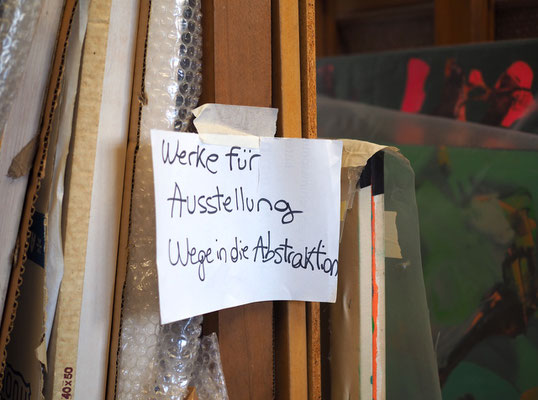 Werke für
Ausstellung
Wege in die Abstraktion
40x50